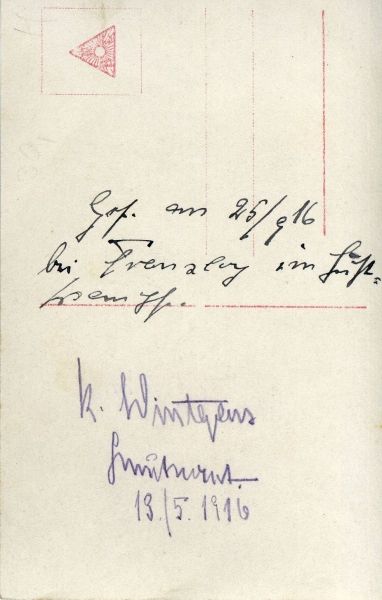 Gef. am 25/9 16
bei im Luft=
kampfe.
K. Wintgens
Leutnant.
13./5.1916